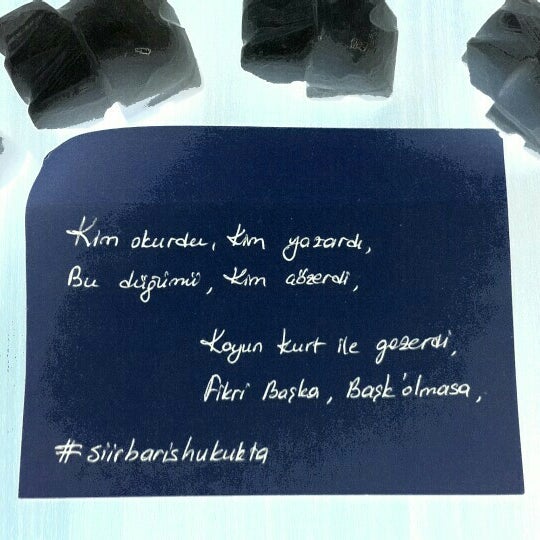 Kim okurdu, kim yazardı,
Bu düğümü, kim çözerdi,
Koyun kurt ile gezerdi,
Fikri Başka, Başk'olmasa,
#siirbarishukukta